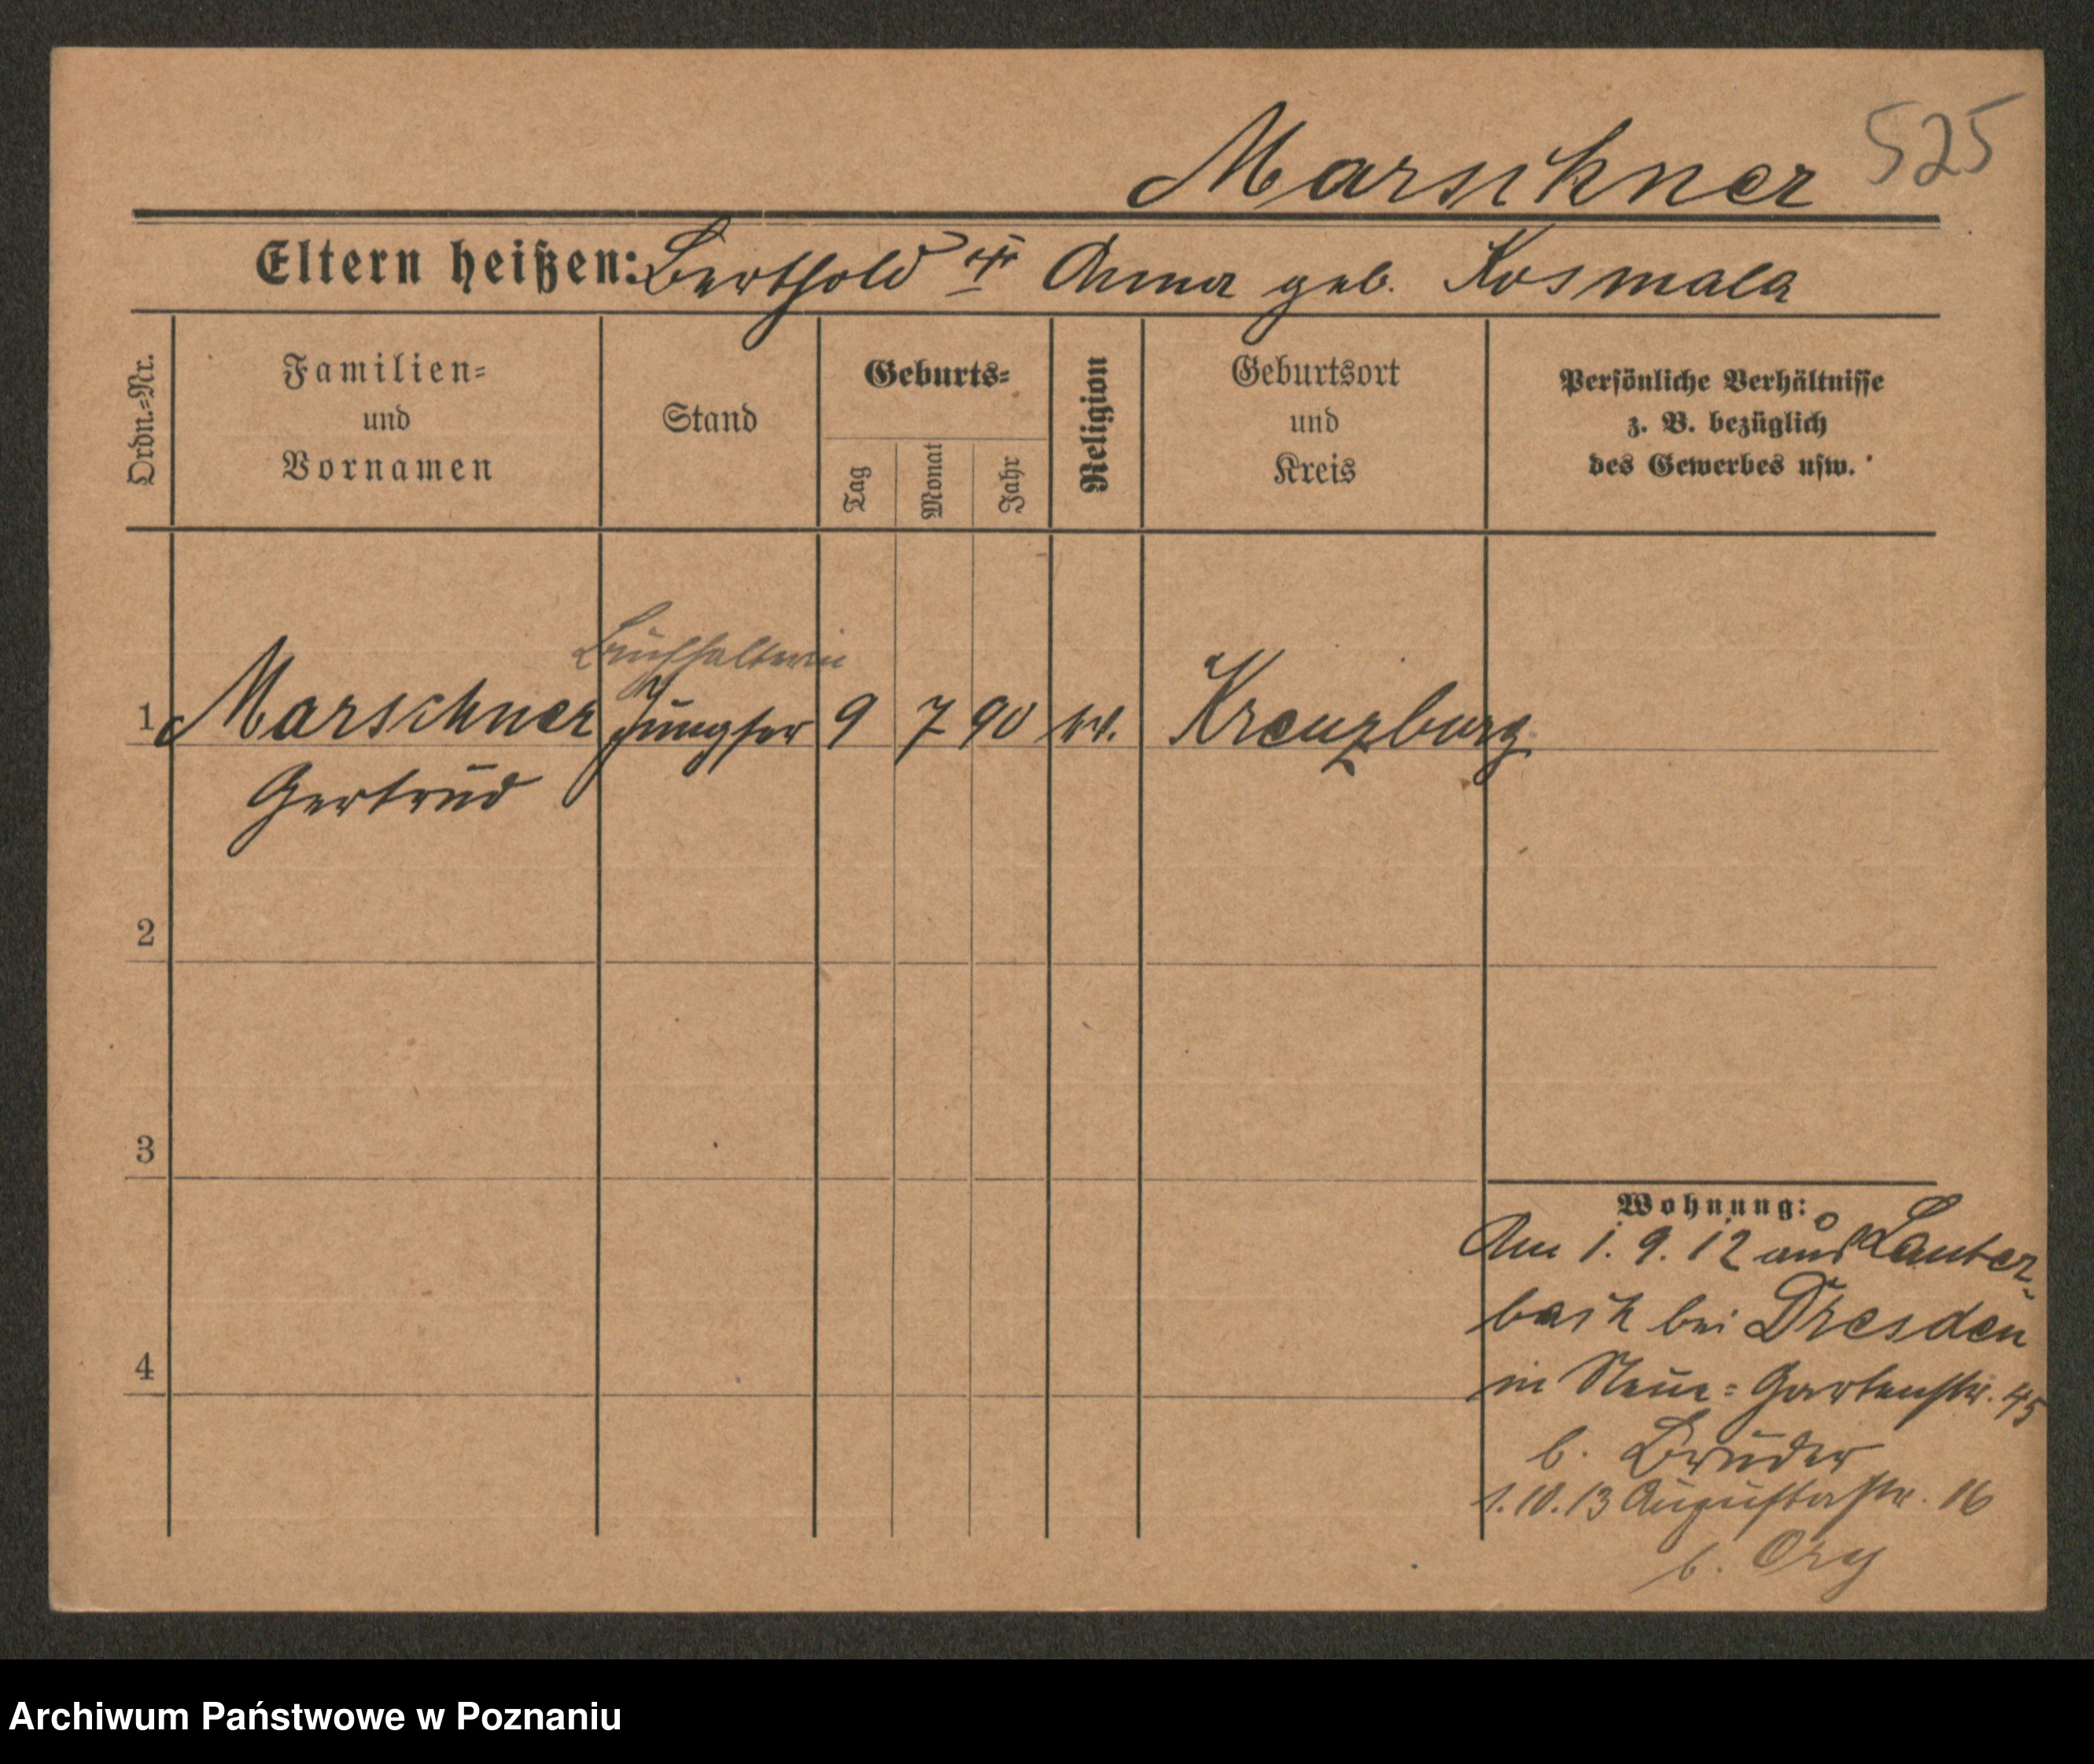 Marschner 525
Eltern heißen: Berthold u Anna geb. Kosmala
Ordn.=Nr.
Familien=
und
Vornamen
Stand
Geburts=
Tag
Monat
Jahr
Religion
Geburtsort
und
Kreis
Persönliche Verhältnisse
z. B. bezüglich
des Gewerbes usw.
Buchhalterin
1 Marschner Jungfer 9 7 90 ev. Kreuzburg
Gertrud
2
3
4
Wohnung:
Am 1. 9. 12 aus Lauter-
bach bei Dresden
in Neue=Gartenstr. 45
b. Bruder
1.10.13 Augustastr. 16
b. Ory
Archiwum Państwowe w Poznaniu